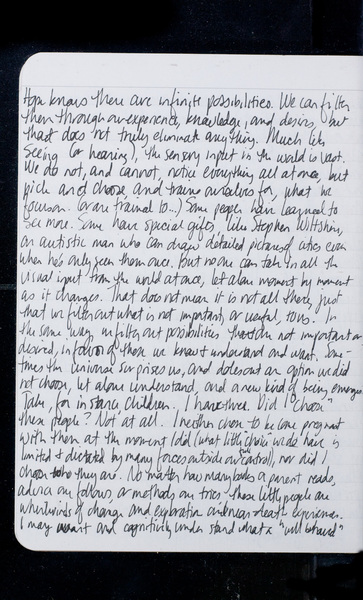 Hope knows there are infinite possibilities. We can filter
them through our experience, knowledge, and desires, but
that does not truly eliminate anything. Much like
seeing (or hearing), the sensory input in the world is vast.
We do not, and cannot, notice everything all at once, but
pick and choose, and train ourselves for, what we
focus on. (or are trained to...) Some people have learned to
see more. Some have special gifts, like Stephen Wiltshire,
an autistic man who can draw detailed pictures of cities even
when he's only seen them once. But no one can take in all the
visual input from the world at once, let alone moment by moment
as it changes. That does not mean it is not all there, just
that we filter out what is not important, or useful, to us. In
the same way, we filter out possibilities that are not important or
desired, in favor of those we know & understand and want. Some-
times the universe surprises us, and doles out an option we did
not choose, let alone understand, and a new kind of being emerges.
Take, for instance, children. I have three. Did I "choose"
these people? Not at all. I neither chose to become pregnant
with them at the moment I did (what little choice we do have is
limited & dictated by many forces outside our control), nor did I
choose who they are. No matter how many books a parent reads,
advice one follows, or methods one tries - these little people are
whirlwinds of change and exploration and near-death experiences.
I may want and cognitively understand what a "well behaved"